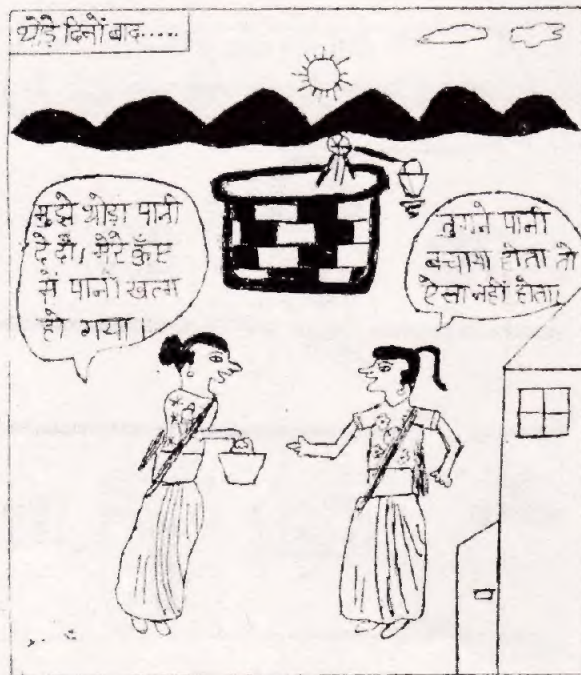 थोड़े दिनों बाद.....
मुझे थोड़ा पानी
दे दो, मेरे कुँए
में पानी खत्म
हो गया।
तुमने पानी
बचाया होता तो
ऐसा नहीं होता।